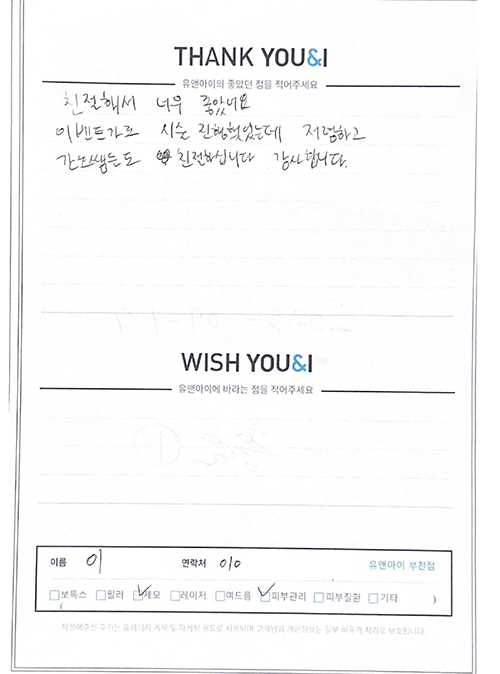 THANK YOU&I
유앤아이의 좋았던 점을 적어주세요
친절해서 너무 좋았네요
이벤트가로 시술 진행했었는데 저렴하고
간호쌤들도 친절하십니다 감사합니다.
WISH YOU&I
유앤아이에 바라는 점을 적어주세요
이름 이 연락처 010 유앤아이 부천점
보톡스 필러 제모 레이저 여드름 피부관리 피부질환 기타
( )
작성해주신 후기는 홈페이지 게재 및 마케팅 용도로 사용되며 고객님의 개인정보는 일부 비공개 처리로 보호됩니다.